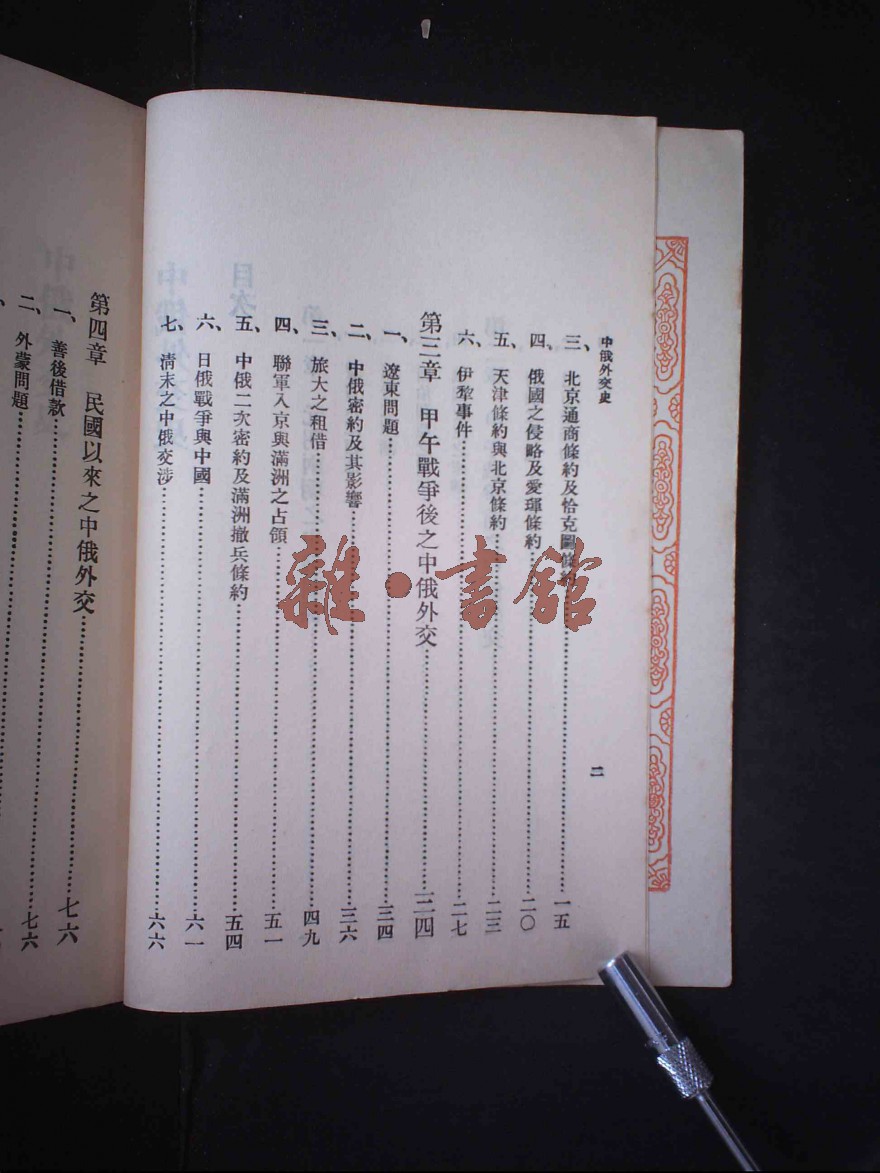 中俄外交史
二
三、北京通商條約及恰克圖條約……一五
四、俄國之侵略及愛琿條約……二〇
五、天津條約與北京條約……二三
六、伊犂事件……二七
第三章 甲午戰爭後之中俄外交……三四
一、遼東問題……三四
二、中俄密約及其影響……三六
三、旅大之租借……四九
四、聯軍入京與滿洲之占領……五一
五、中俄二次密約及滿洲撤兵條約……五四
六、日俄戰爭與中國……六一
七、淸末之中俄交涉……六六
第四章 民國以來之中俄外交……
一、善後借款……七六
二、外蒙問題……七六
雜·書館